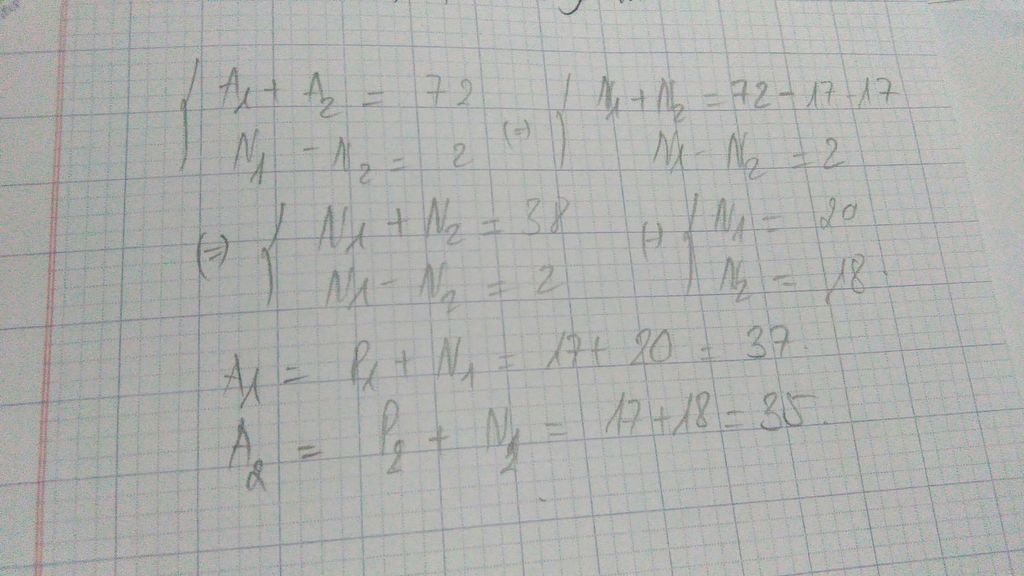 { A₁ + A₂ = 72 (=) { N₁ + N₂ = 72 - 17 - 17
N₁ - N₂ = 2 N₁ - N₂ = 2
(=) { N₁ + N₂ = 38 (=) { N₁ = 20
N₁ - N₂ = 2 N₂ = 18.
A₁ = P₁ + N₁ = 17 + 20 = 37.
A₂ = P₂ + N₂ = 17 + 18 = 35.